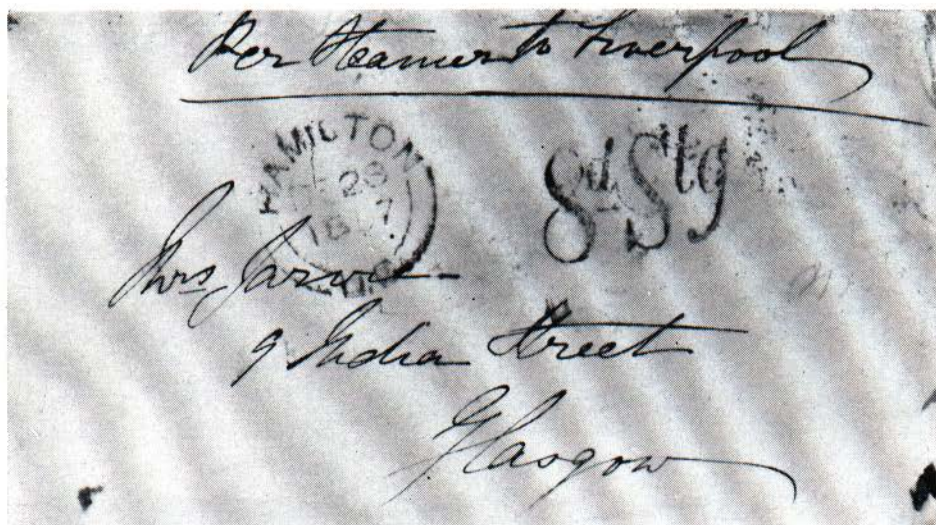 Per Steamer to Liverpool
HAMILTON
28
8d Stg
Mrs Jarvie
9 India Street
Glasgow